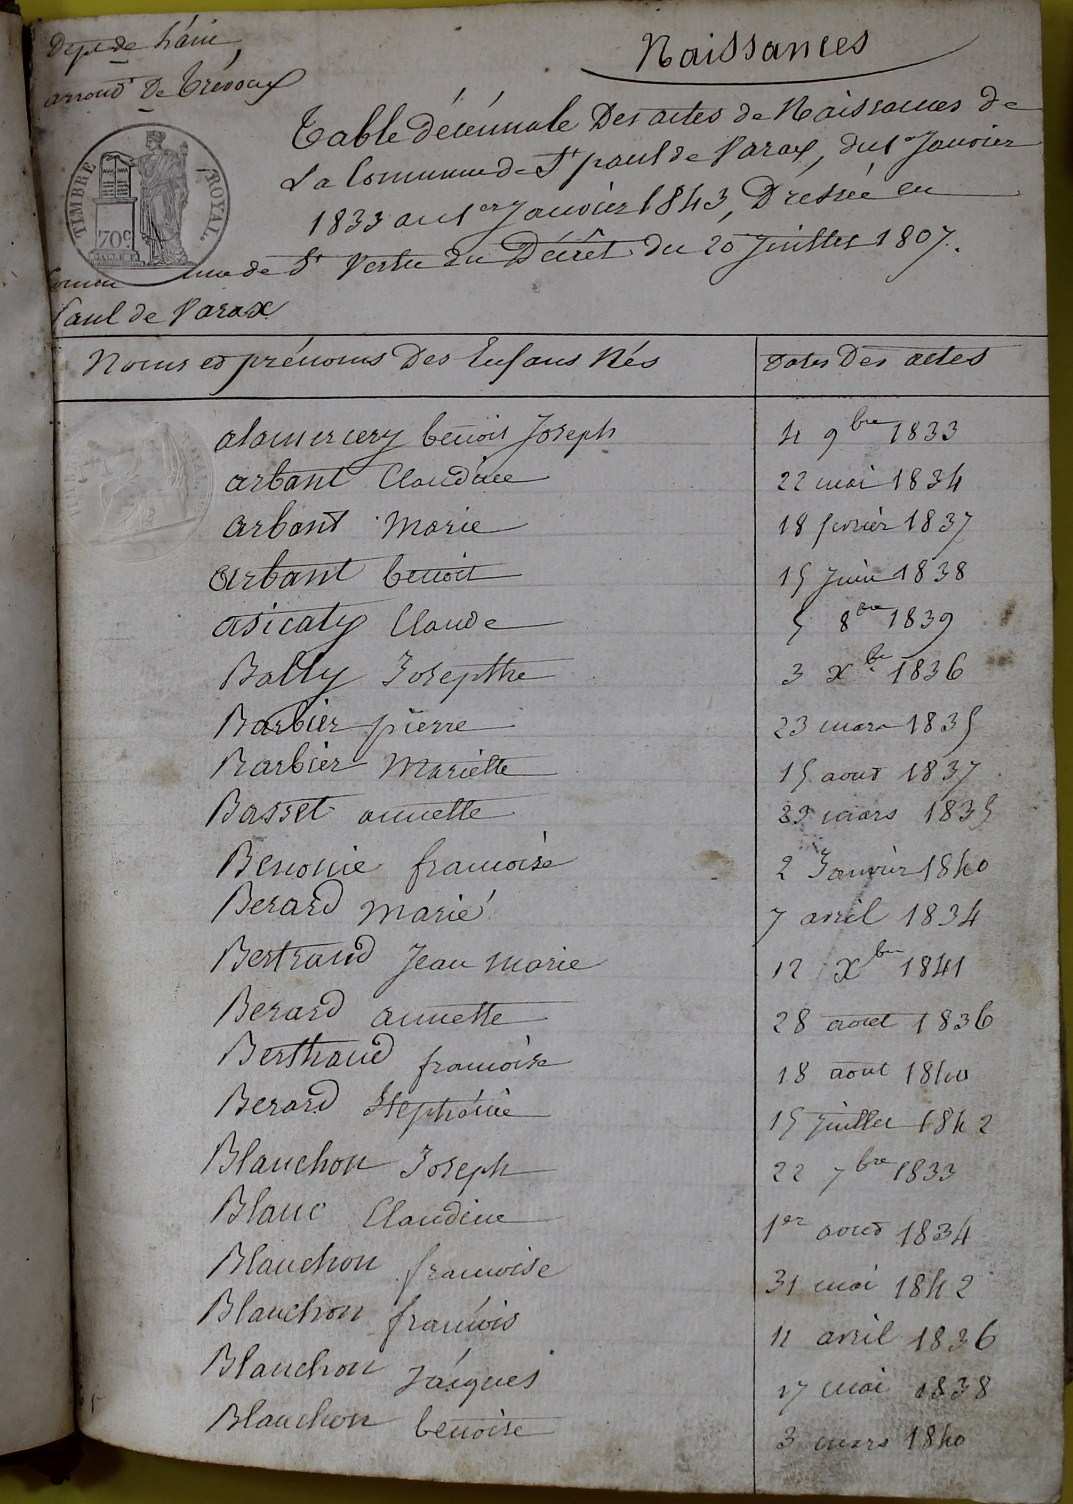 Dept de l'ain
Naissances
arrondt De Trévoux
Table décennale Des actes de Naissances de
La Commune de St paul de Varax, du 1er Janvier
1833 au 1er Janvier 1843, Dressée en
Vertu du Décrêt du 20 Juillet 1807.
TIMBRE ROYAL.
70c
Commune de St
Paul de Varax
Noms et prénoms Des Enfans Nés Dates Des actes
alamercery benoit Joseph 4 9bre 1833
arbant Claudine 22 mai 1834
arbant Marie 18 fevrier 1837
arbant benoit 15 Juin 1838
asicaty Claude 5 8bre 1839
Bally Josepthe 3 Xbre 1836
Barbier pierre 23 mars 1835
Barbier Mariette 15 aout 1837
Basset annette 23 mars 1835
Benonie francoise 2 Janvier 1840
Berard Marie 7 avril 1834
Bertraud Jean Marie 12 Xbre 1841
Berard annette 28 aout 1836
Berthaud francoise 18 aout 1840
Berard Stephánie 15 Juillet 1842
Blanchon Joseph 22 7bre 1833
Blanc Claudine 1er aout 1834
Blanchon francoise 31 mai 1842
Blanchon francois 4 avril 1836
Blanchon Jacques 17 mai 1838
Blanchon benoise 3 mars 1840